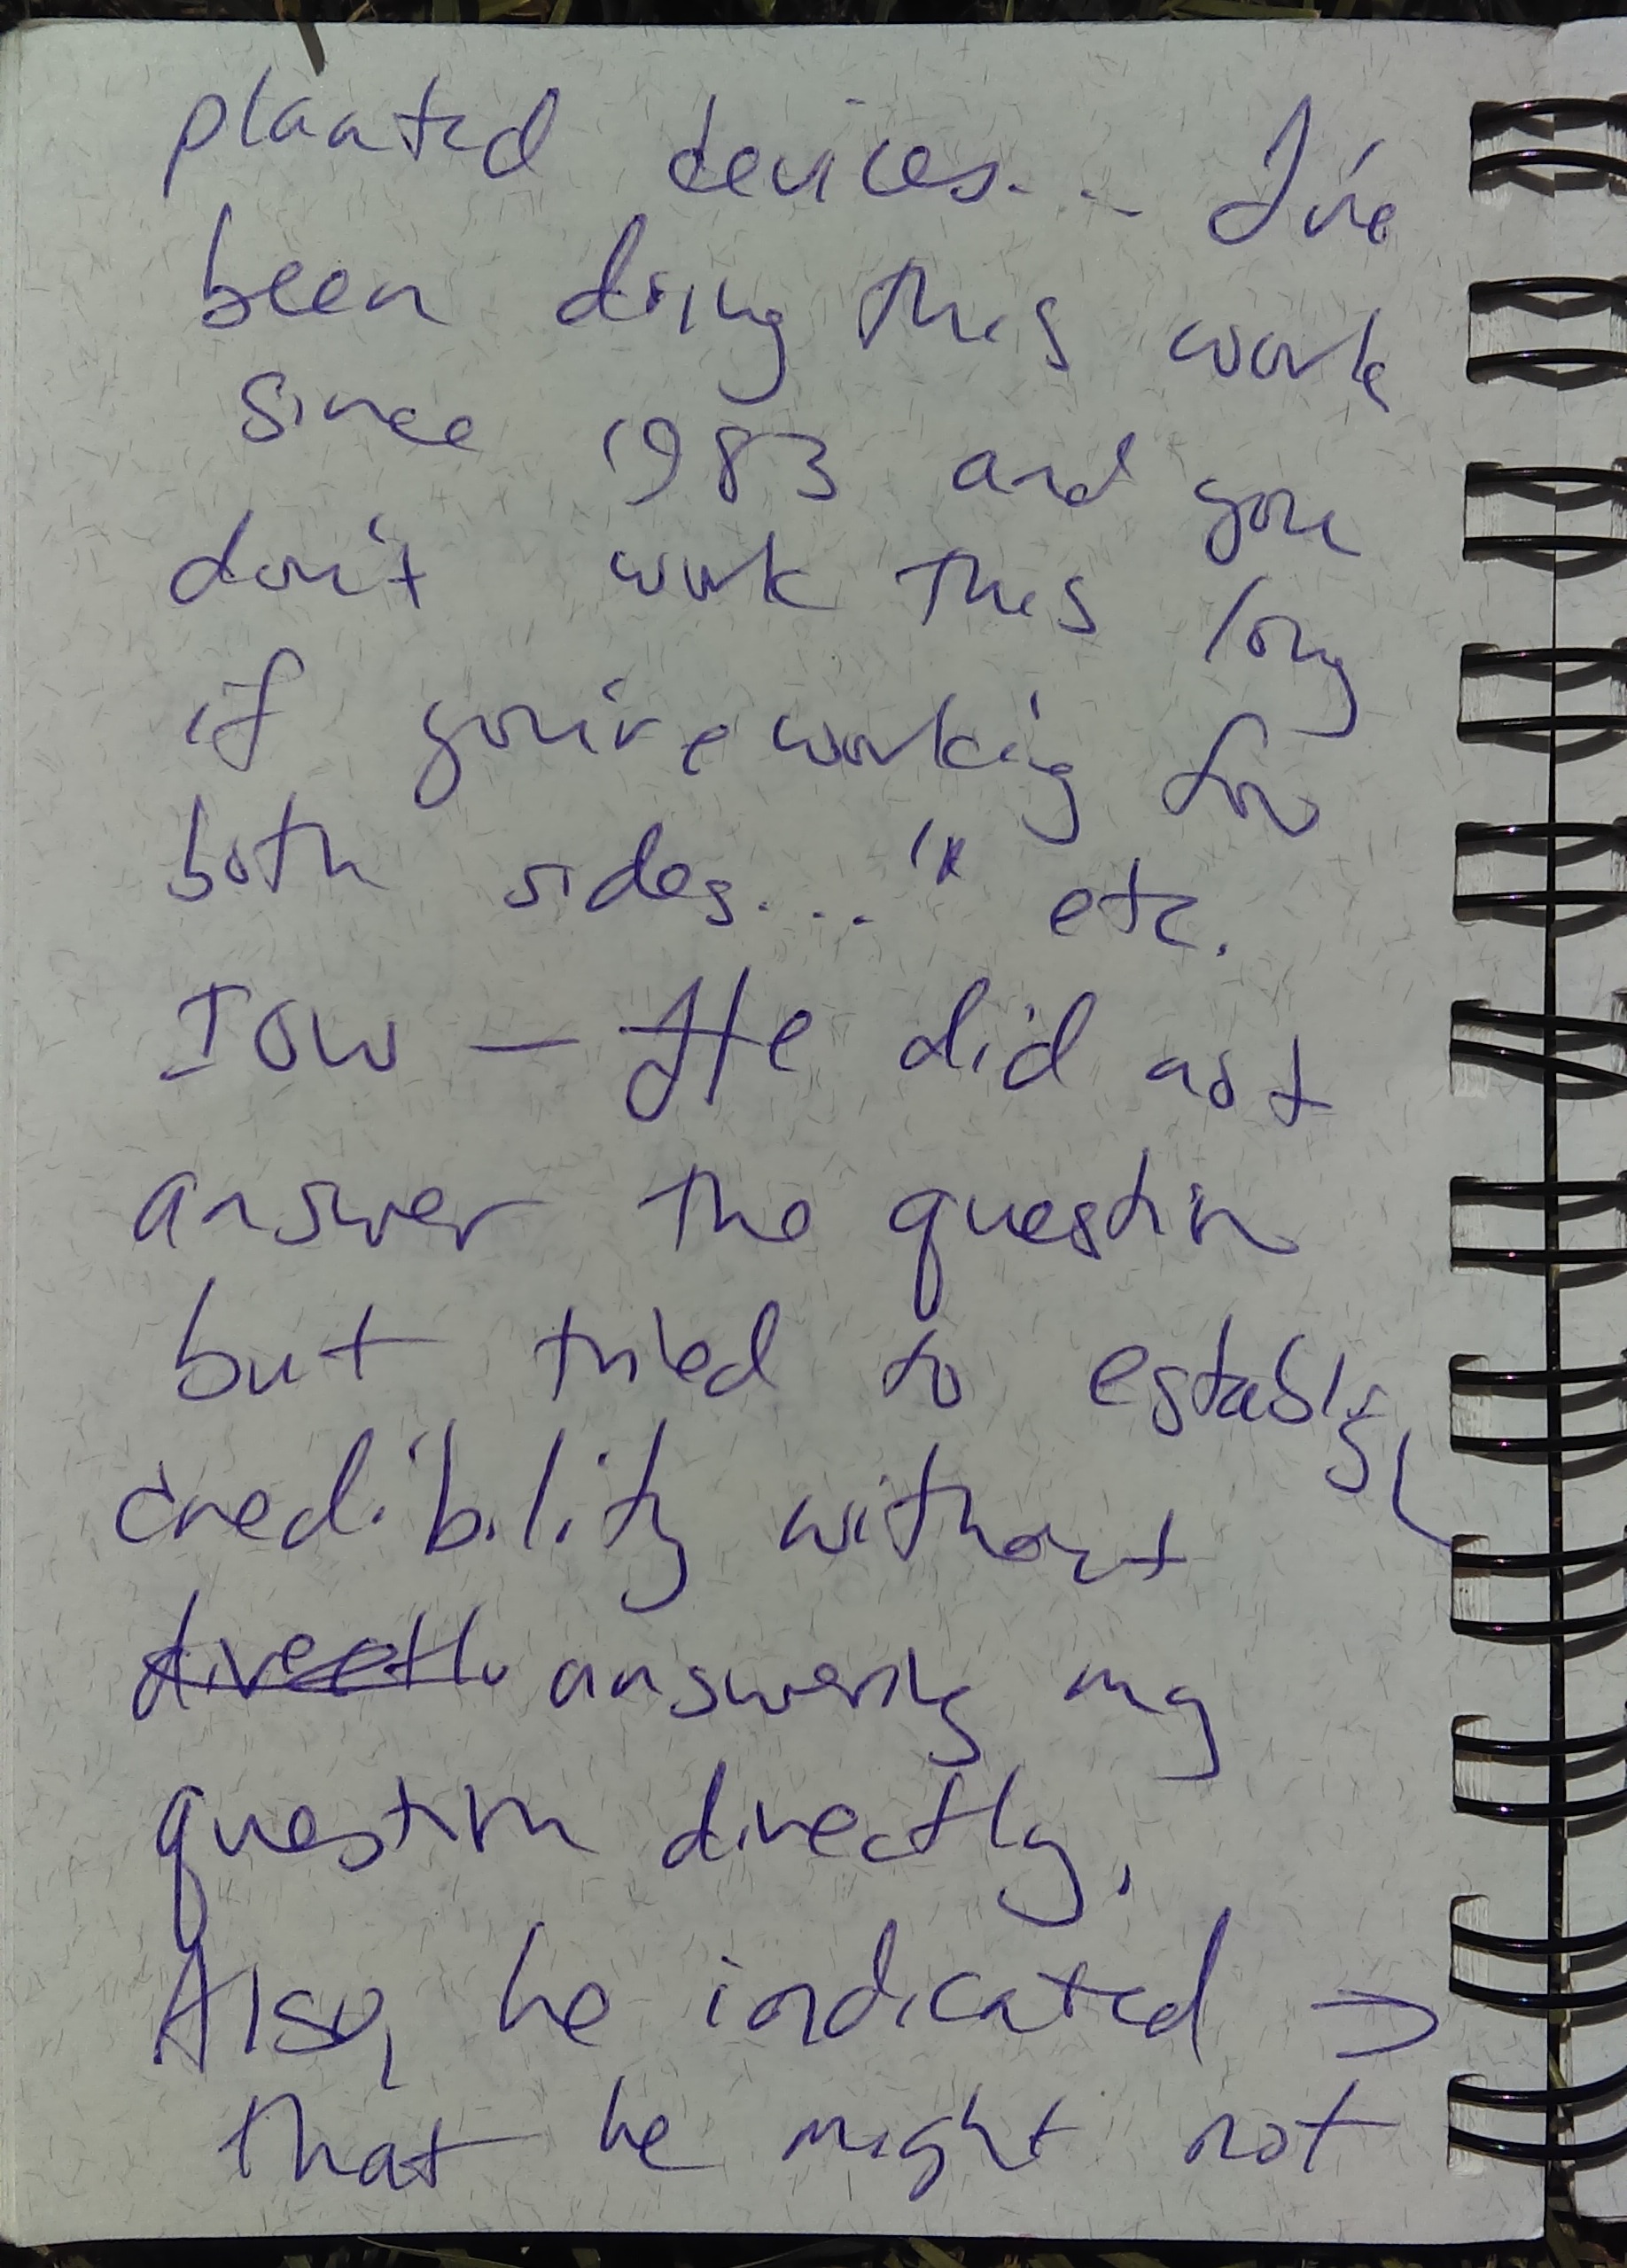 planted devices... I've
been doing this work
since 1983 and you
don't work this long
if you're working for
both sides...." etc.
IOW — He did not
answer the question
but tried to establish
credibility without
directly answering my
question directly.
Also, he indicated →
that he might not